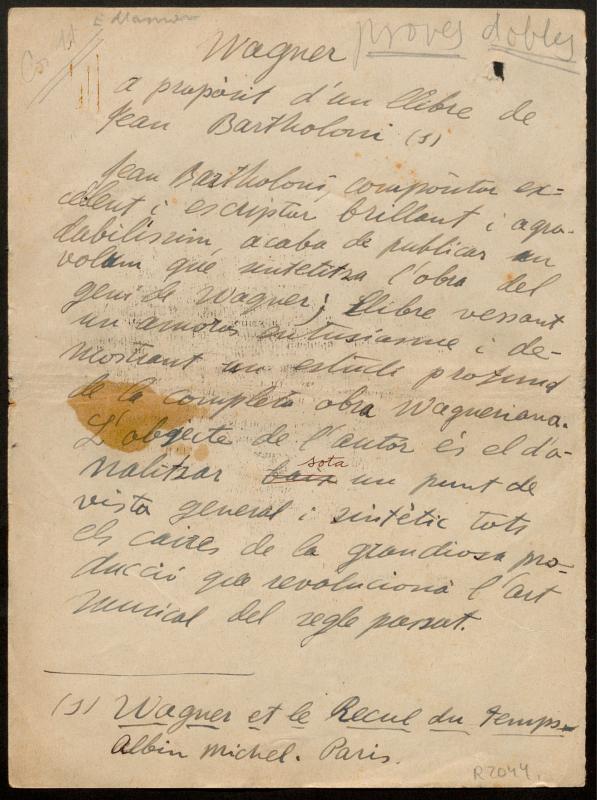 proves dobles
Wagner
a propòsit d'un llibre de
Jean Bartholoni (1)
Jean Bartholoni, compositor ex=
celent i escriptor brillant i agra-
dabilíssim, acaba de publicar un
volum que sintetitza l'obra del
geni de Wagner; llibre vessant
un amorós entusiasme i de-
mostrant un estudi profund
de la completa obra Wagneriana.
L'objecte de l'autor és el d'a-
nalitzar baix sota un punt de
vista general i sintètic tots
els caires de la grandiosa pro-
ducció que revolucionà l'art
musical del segle passat.
(1) Wagner et le Recul du temps-
Albin Michel. Paris.
R 7044